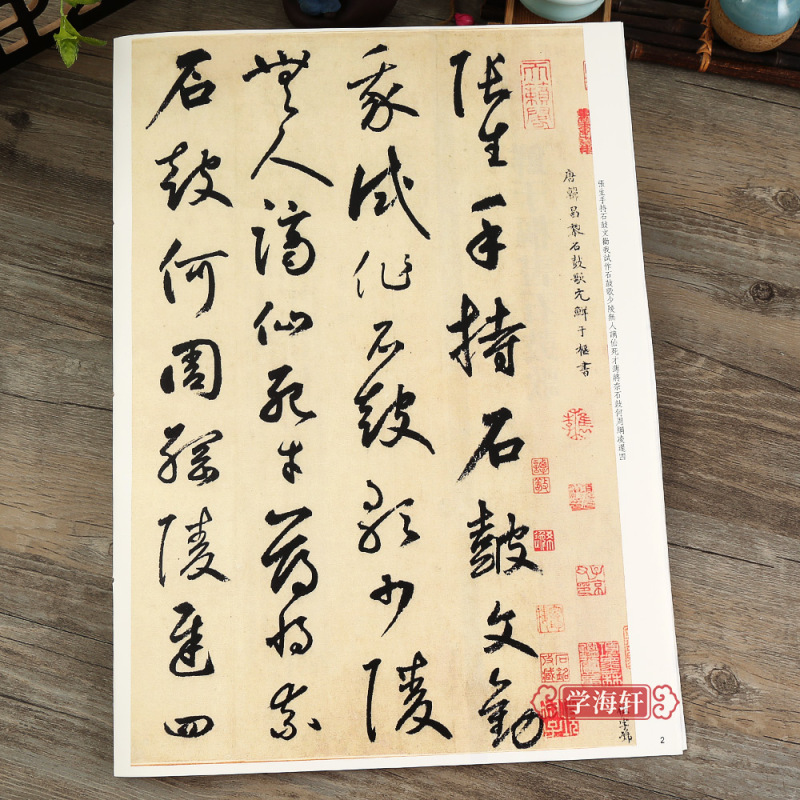 張生手持石鼓文勸我試作石鼓歌少陵無人謫仙死才薄將奈石鼓何周綱凌遲四
唐韓昌黎石鼓歌元鮮于樞書
張生手持石鼓文勸
我試作石鼓歌少陵
無人謫仙死才薄將奈
石鼓何周綱陵遲四
学海轩
2